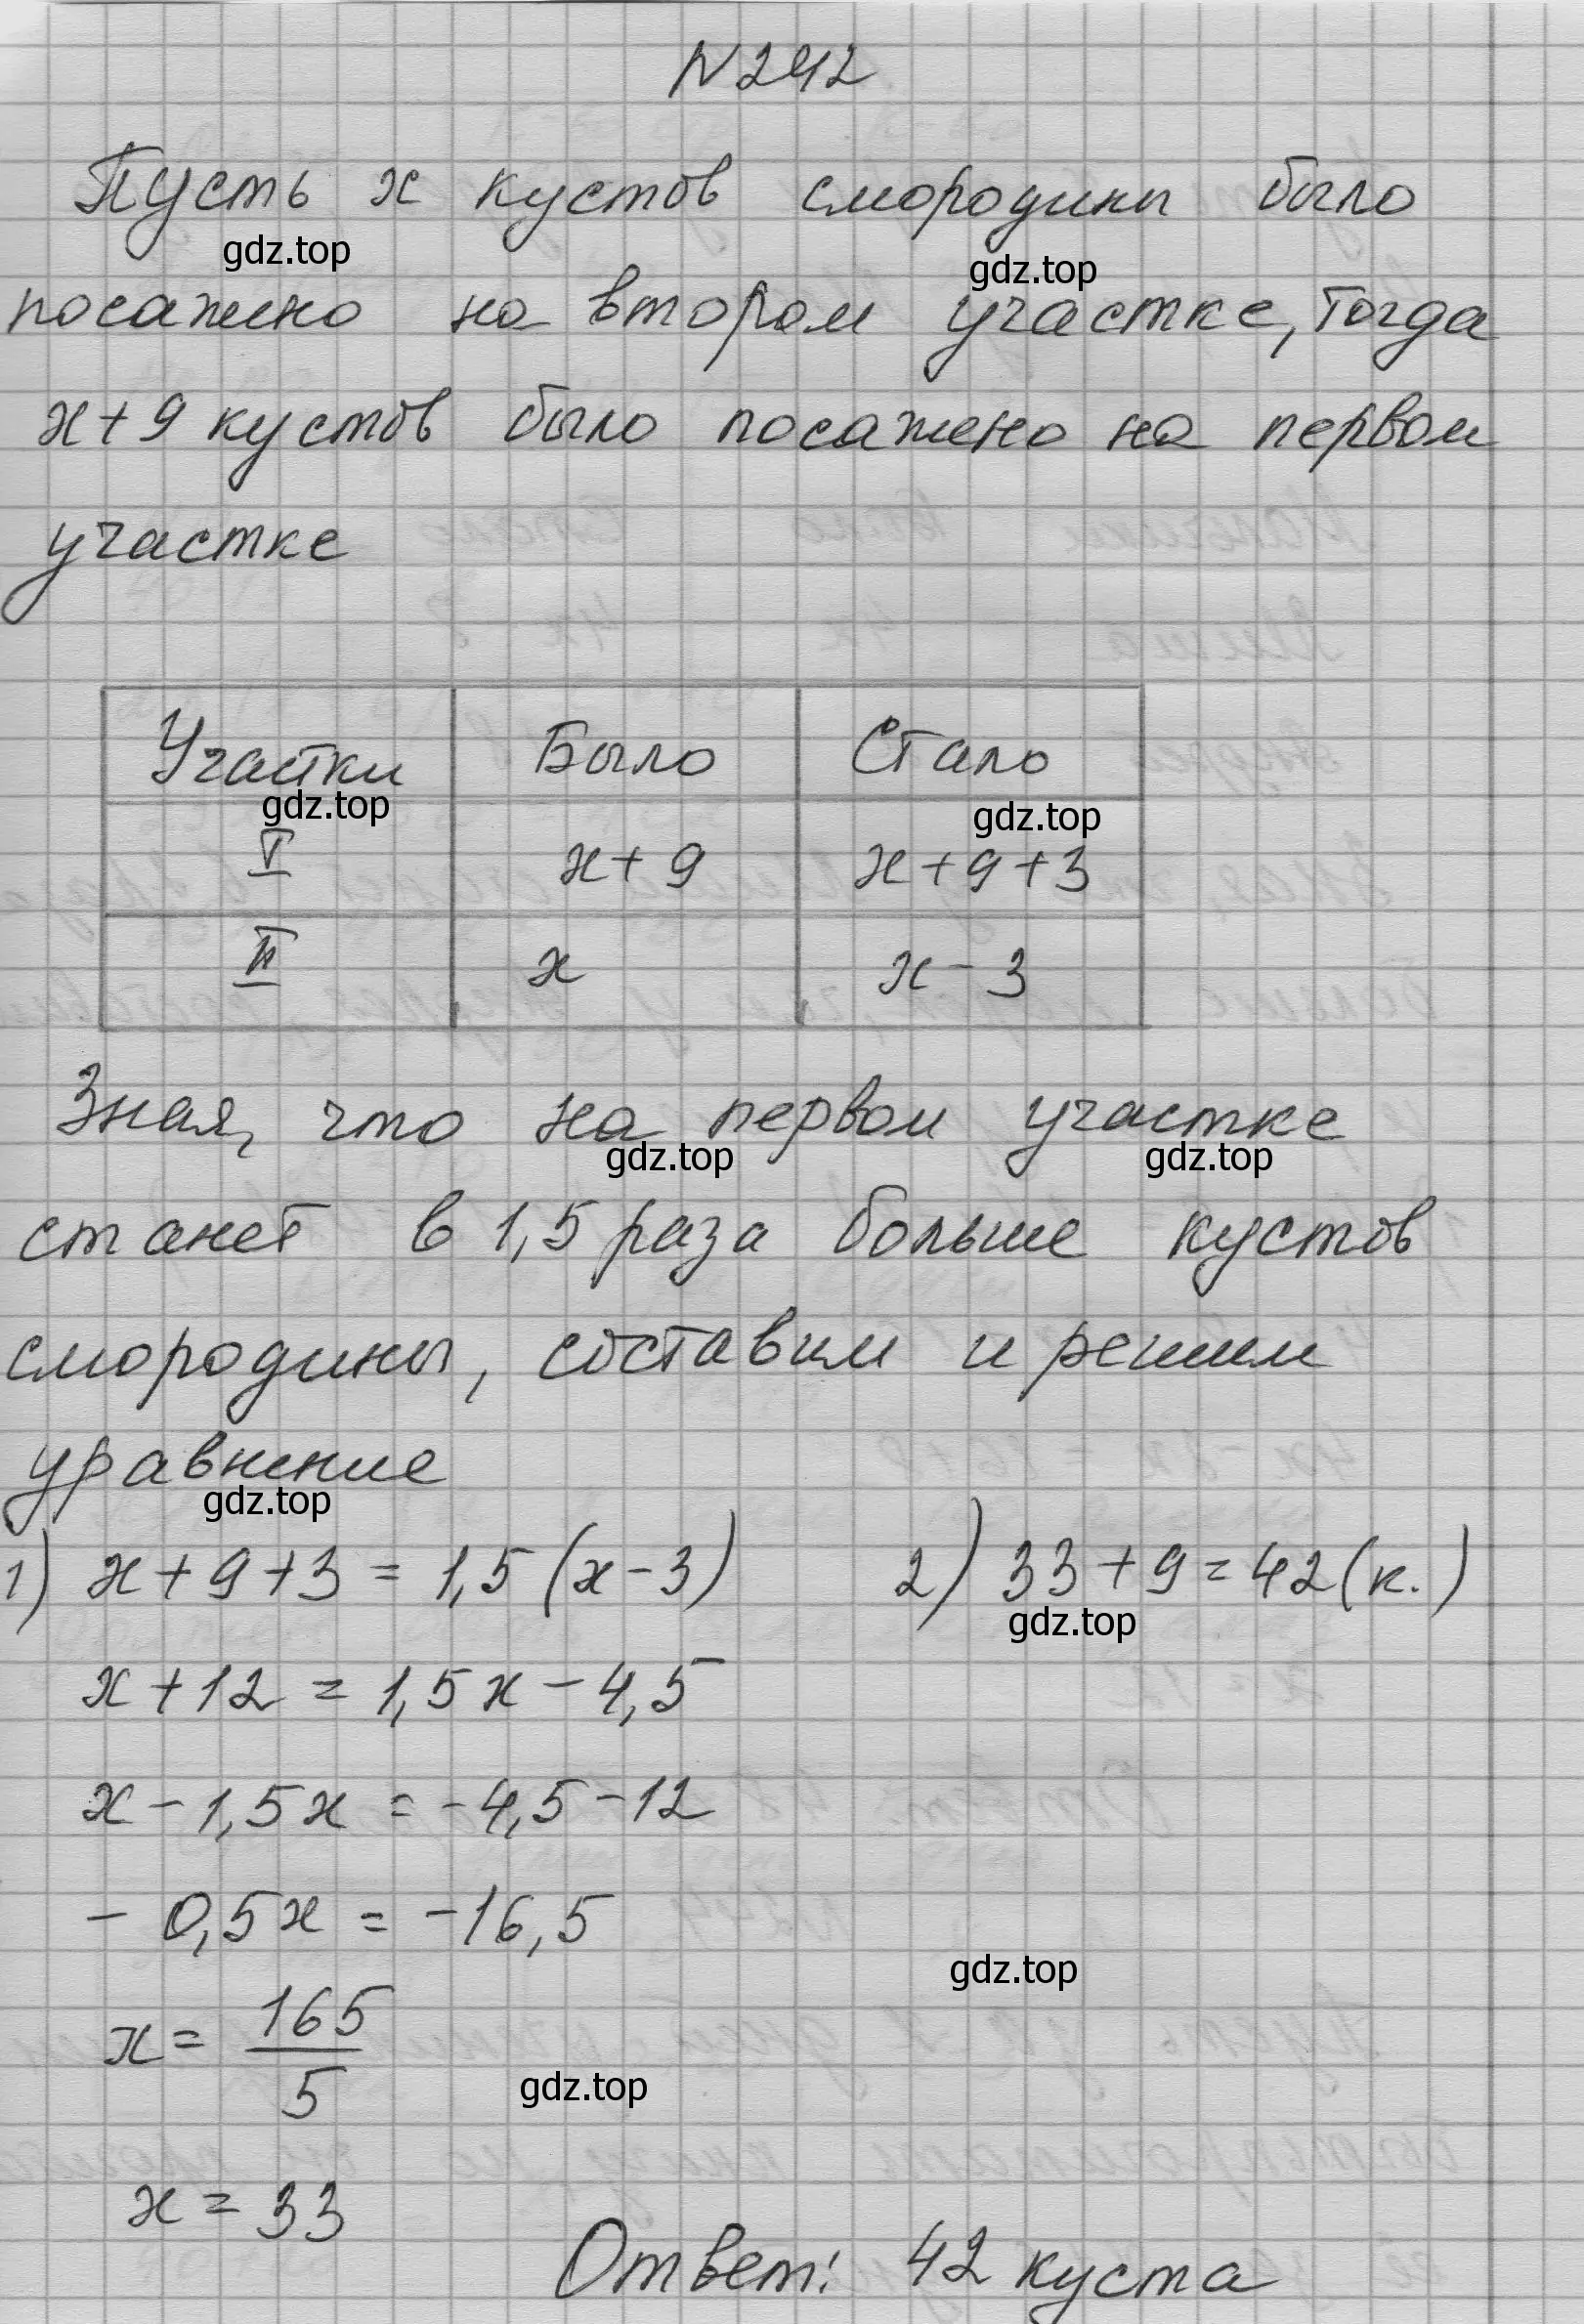 N242
Пусть х кустов смородины было
gdz.top
gdz.top
посажено на втором участке, тогда
х+9 кустов было посажено на первом
участке
Участки Было Стало
gdz.top
gdz.top
I х+9 х+9+3
II х х-3
Зная, что на первом участке
gdz.top
gdz.top
станет в 1,5 раза больше кустов
смородины, составим и решим
уравнение
gdz.top
1) х+9+3=1,5(х-3) 2) 33+9=42(к.)
gdz.top
х+12=1,5х-4,5
х-1,5х=-4,5-12
-0,5х=-16,5
gdz.top
х=165/5
gdz.top
х=33
Ответ: 42 куста